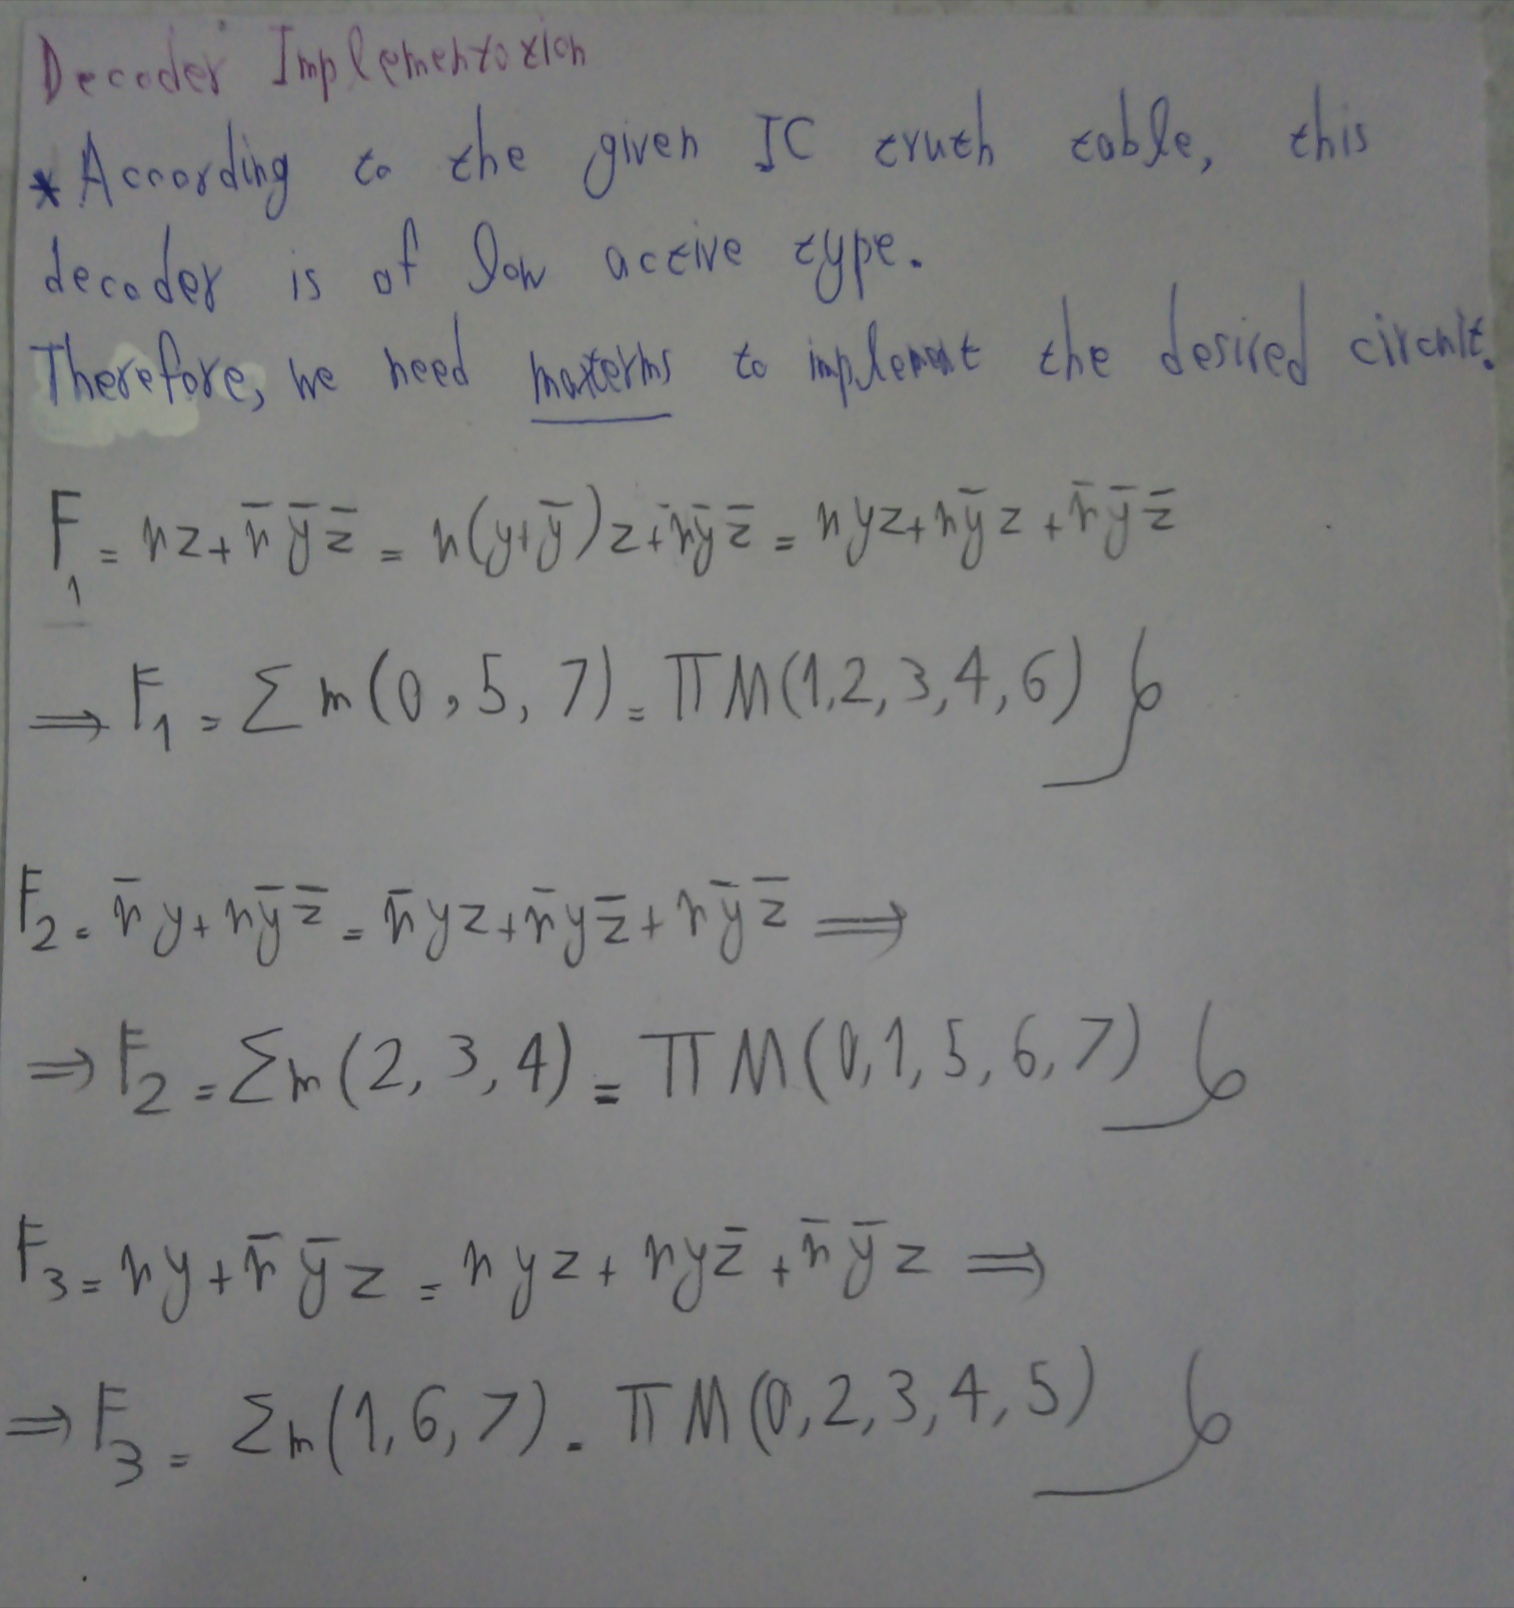 Decoder Implementation
* According to the given IC truth table, this
decoder is of low active type.
Therefore, we need maxterms to implement the desired circuit.
F₁ = xz + x̄ȳz̄ = x(y+ȳ)z + x̄ȳz̄ = xyz + xȳz + x̄ȳz̄
⇒ F₁ = Σm(0, 5, 7) = ΠM(1,2,3,4,6)
F₂ = x̄y + xȳz̄ = x̄yz + x̄yz̄ + xȳz̄ ⇒
⇒ F₂ = Σm(2,3,4) = ΠM(0,1,5,6,7)
F₃ = xy + x̄ȳz = xyz + xyz̄ + x̄ȳz ⇒
⇒ F₃ = Σm(1,6,7) = ΠM(0,2,3,4,5)